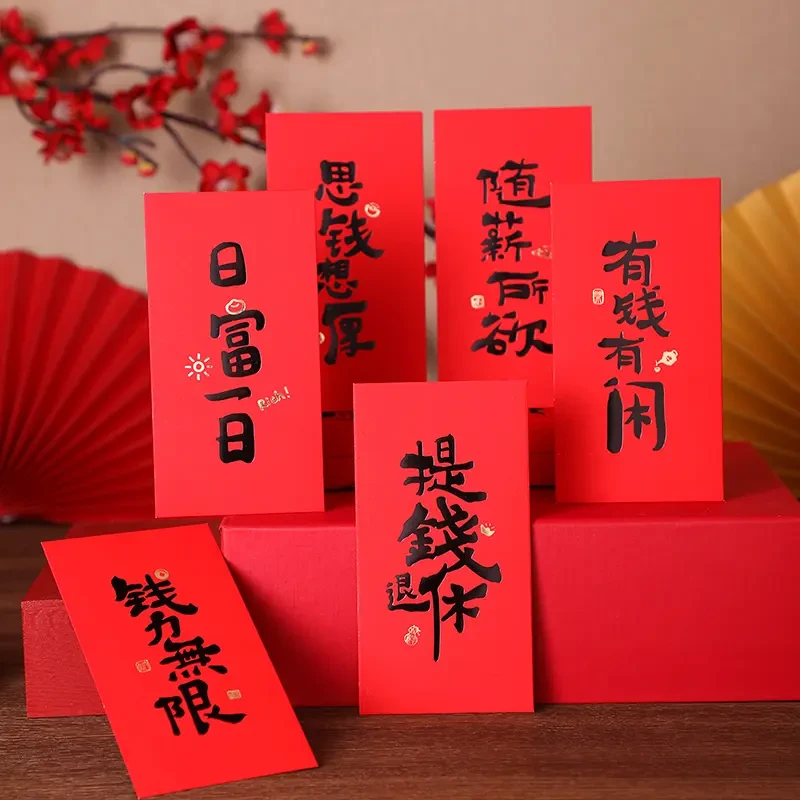 思钱想厚
随薪所欲
日富一日
Rich!
有钱有闲
提錢退休
钱力無限